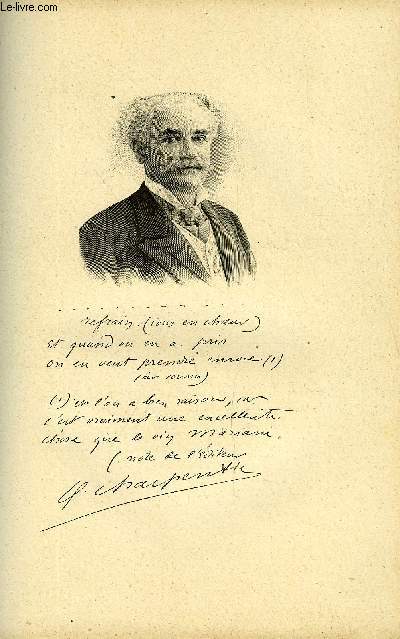 Le-livre.com
refrain (tous en chœur)
Et quand on en a pris
on en veut prendre encore (1)
(air connu)
(1) et l'on a bien raison, car
c'est vraiment une excellente
chose que le vin Mariani.
(note de l'éditeur
G. Charpentier